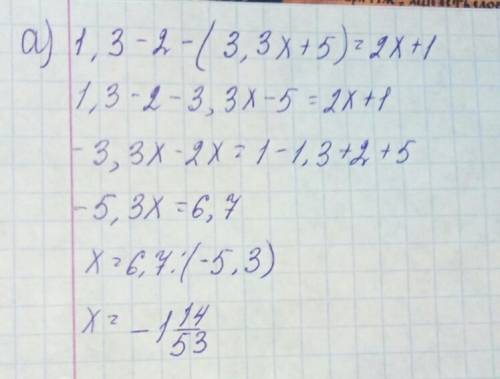 а) 1,3-2-(3,3x+5)=2x+1
1,3-2-3,3x-5=2x+1
-3,3x-2x=1-1,3+2+5
-5,3x=6,7
x=6,7:(-5,3)
x=-1 14/53